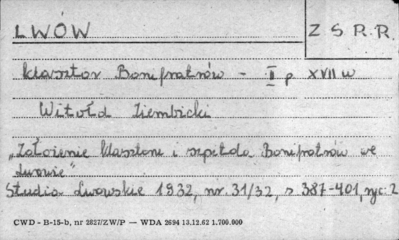 LWÓW
Z S. R. R.
Klasztor Bonifratrów - II p. XVII w
Witold Ziembicki
„Założenie klasztoru i szpitala Bonifratrów we
Lwowie"
Studia Lwowskie 1932, nr. 31/32, s 387-401, ryc. 2
CWD - B-15-b, nr 2827/ZW/P — WDA 2694 13.12.62 1.700.000